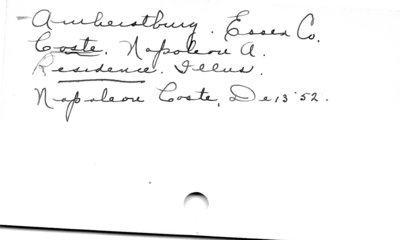 Amherstburg. Essex Co.
Coste, Napoleon A.
Residence. Illus.
Napoleon Coste, De 13 '52.